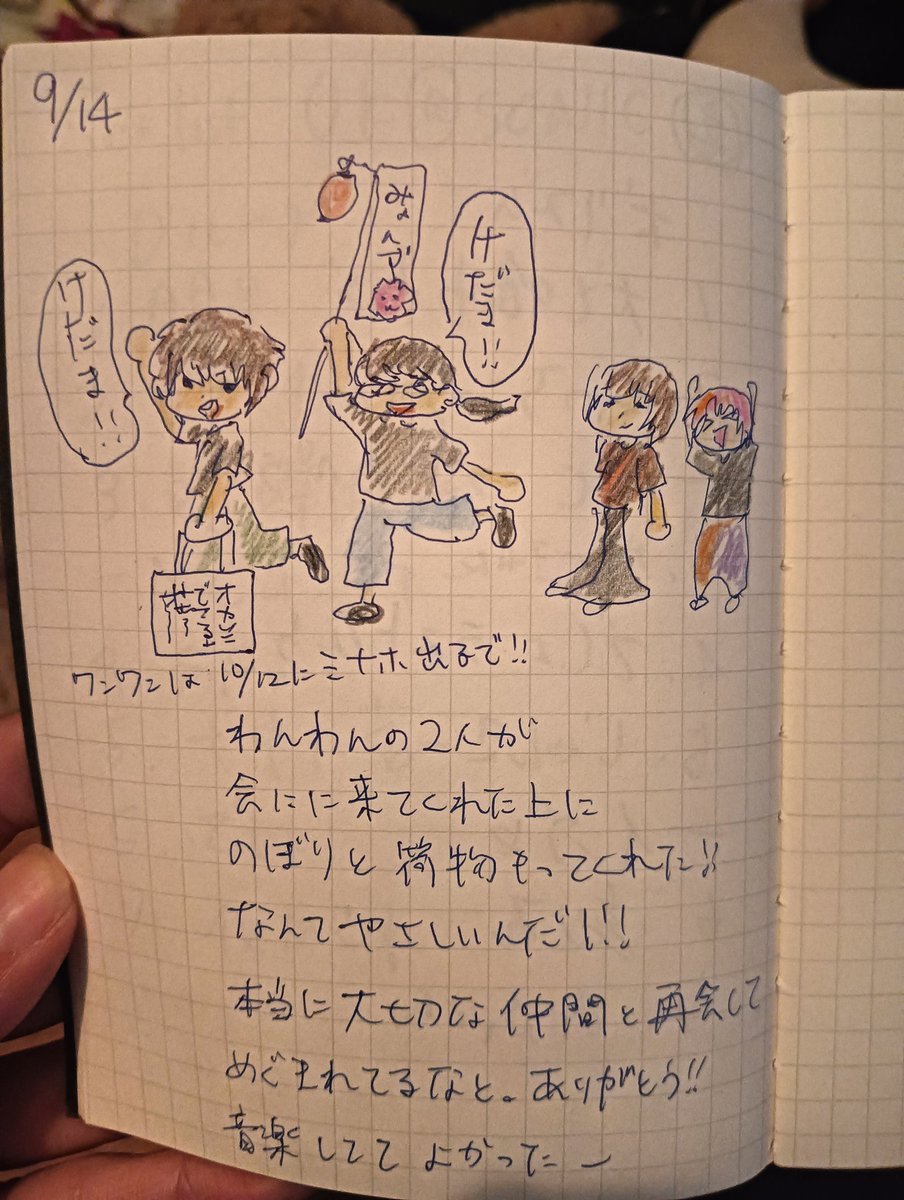 9/14
みょんで
けだま!!
けだま!!
オカンに
ワンワンは10/12にミナホ出るで!!
わんわんの2人が
会にに来てくれた上に
のぼりと荷物もってくれた!!
なんてやさしいんだ!!!
本当に大切な仲間と再会して
めぐまれてるなと。ありがとう!!
音楽しててよかったー